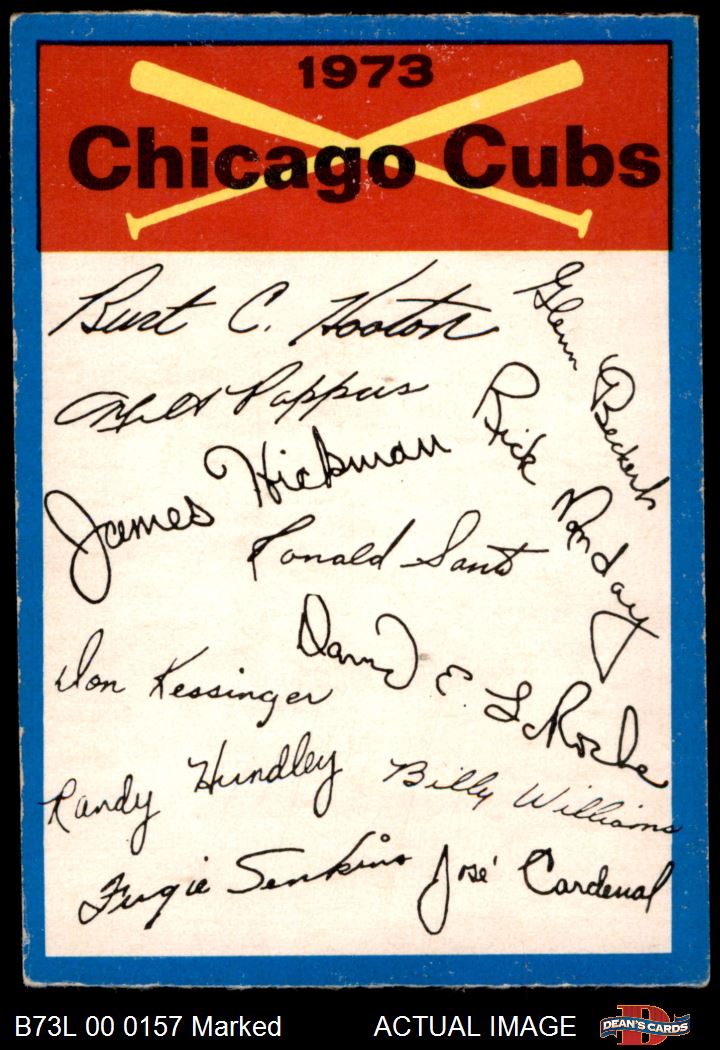 1973
Chicago Cubs
Burt C. Hooton
Glenn Beckert
Milt Pappas
Rick Monday
James Hickman
Ronald Santo
David E. LaRoche
Don Kessinger
Randy Hundley
Billy Williams
Fergie Jenkins
José Cardenal
B73L 00 0157 Marked
ACTUAL IMAGE
DEAN'S CARDS